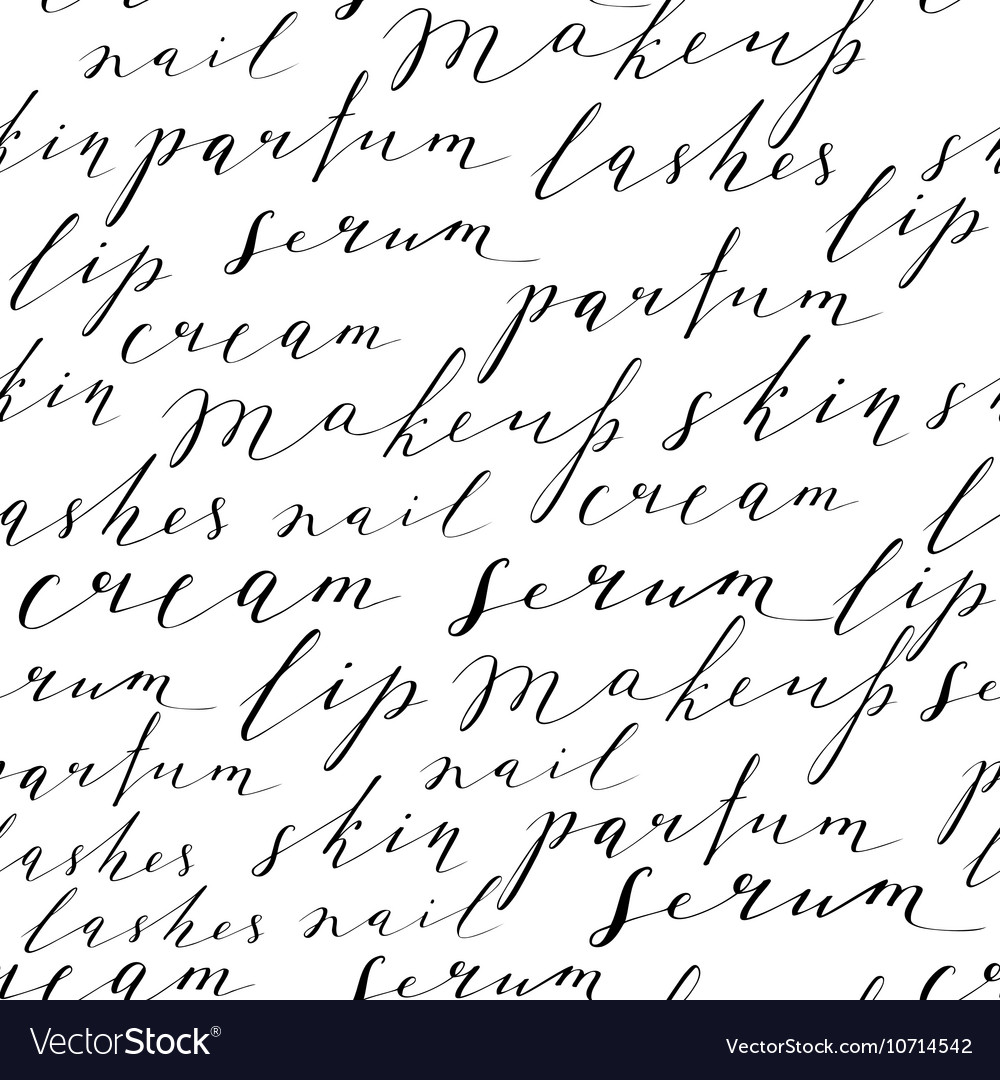 nail Makeup
kin parfum lashes sk
lip serum lip
cream parfum
kin Makeup skin sk
ashes nail cream l
cream serum lip
rum lip Makeup se
arfum nail p
lashes skin parfum l
lashes nail serum
ream serum cr
VectorStock® VectorStock.com/10714542